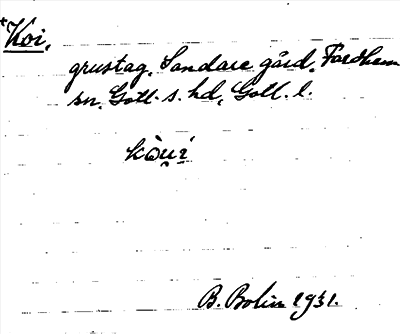 *Koi,
grustag, Sandare gård, Fardhem
sn. Gotl. s. hd, Gotl. l.
kòṷi̯
B. Bolin 1931.